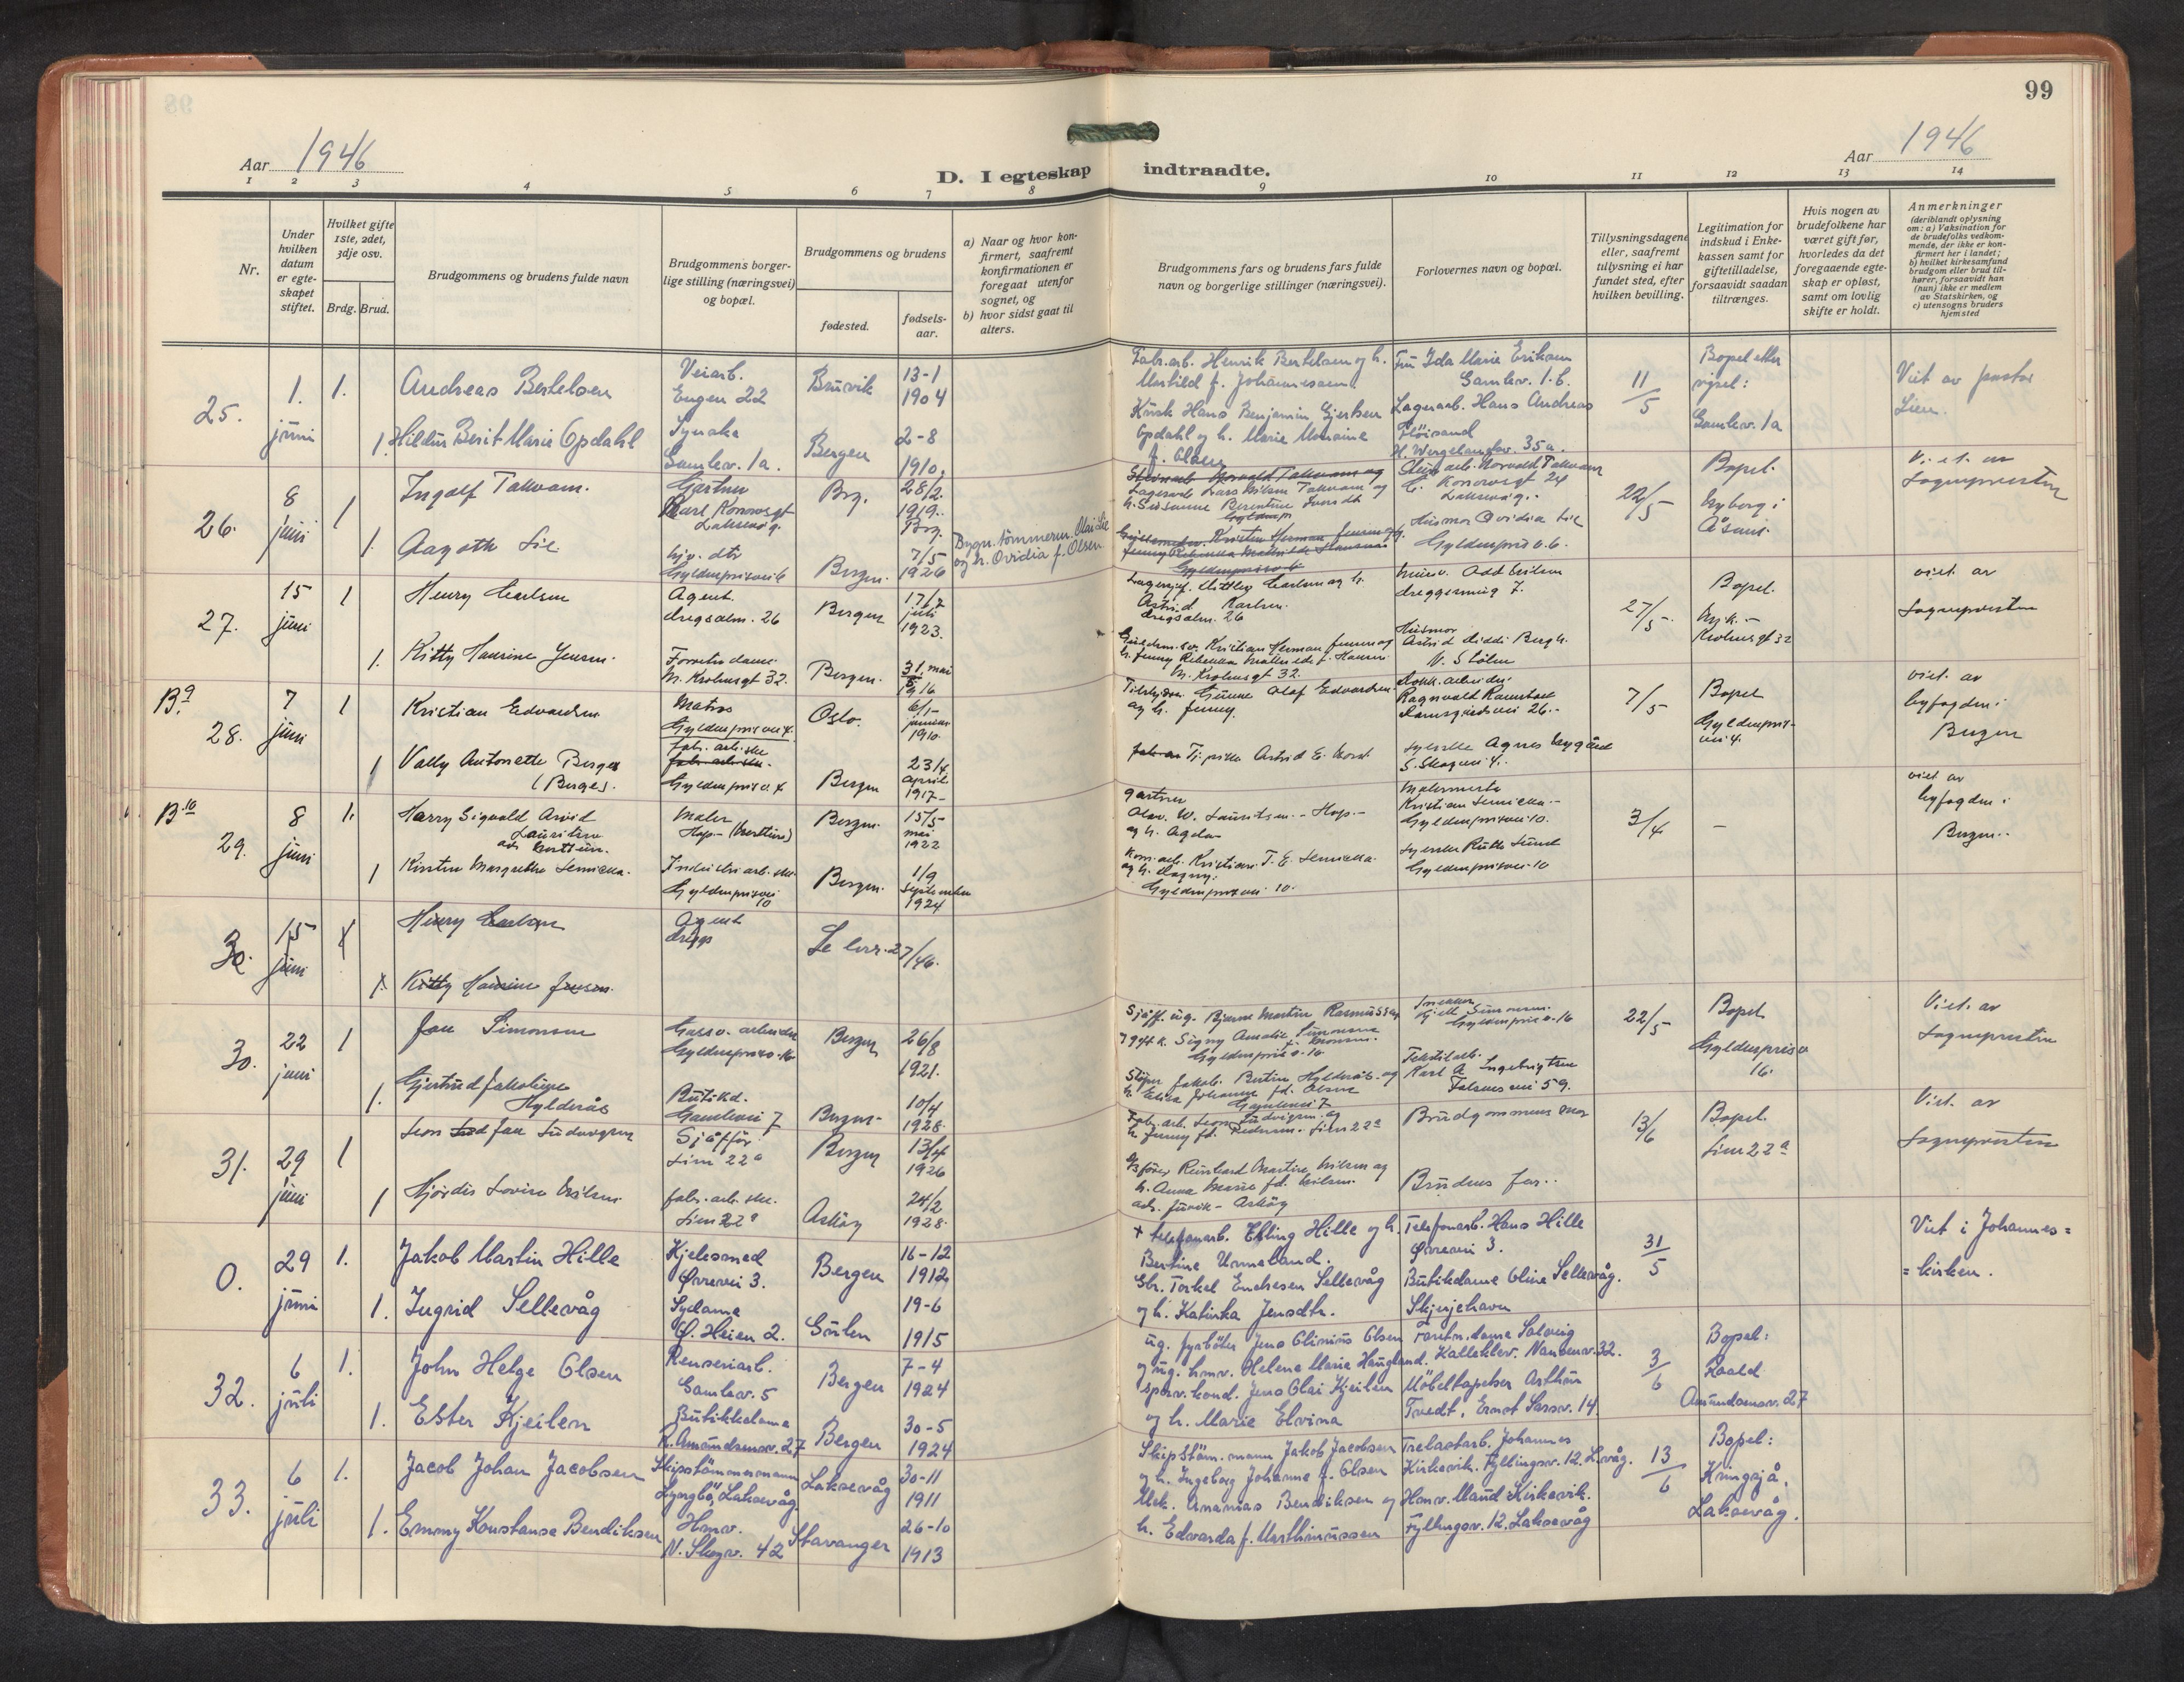 99
Aar 1946
D. I egteskap indtraadte.
Aar 1946
1 2 3 4 5 6 7 8 9 10 11 12 13 14
Nr.
Under hvilken datum er egteskapet stiftet.
Hvilket gifte 1ste, 2det, 3dje osv.
Brdg. Brud.
Brudgommens og brudens fulde navn
Brudgommens borgerlige stilling (næringsvei) og bopæl.
Brudgommens og brudens
fødested.
fødselsaar.
a) Naar og hvor konfirmert, saafremt konfirmationen er foregaat utenfor sognet, og
b) hvor sidst gaat til alters.
Brudgommens fars og brudens fars fulde navn og borgerlige stillinger (næringsvei).
Forlovernes navn og bopæl.
Tillysningsdagene eller, saafremt tillysning ei har fundet sted, efter hvilken bevilling.
Legitimation for indskud i Enkekassen samt for giftetilladelse, forsaavidt saadan tiltrænges.
Hvis nogen av brudefolkene har været gift før, hvorledes da det foregaaende egteskap er opløst, samt om lovlig skifte er holdt.
Anmerkninger
(deriblandt oplysning om: a) Vaksination for de brudefolks vedkommende, der ikke er konfirmert her i landet; b) hvilket kirkesamfund brudgom eller brud tilhører, forsaavidt han (hun) ikke er medlem av Statskirken, og c) utensogns bruders hjemsted
25. 1. juni 1. Andreas Bertelsen Veiarb. Engen 22 Bruvik 13-1 1904
Fabr.arb. Henrik Bertelsen og h. Matild f. Johannessen
Fru Ida Marie Eriksen Gamlev. 1.b.
11/5
Bopel etter vigsel: Gamlev. 1a
Viet av pastor Lien.
1. Hildur Berit Marie Opdahl Syerske Gamlev. 1a. Bergen 2-8 1910.
Kusk Hans Benjamin Gjertsen Opdahl og h. Marie f. Olsen
Lagerarb. Hans Andreas Fløisand H. Wergelandsv. 35a.
26. 8 juni 1 Ingolf Takvam. Gartner Karl Konowsgt Laksevåg. Brg. 28/2. 1919.
Lars Nilsen Takvam og h. Susanne Berentine
Norvald Takvam C. Konowsgt 24 Laksevåg.
22/5
Bopel. Nyborg i Åsane.
Viet av Sognepresten
1. Aagoth Lie hjv. dtr Gyldenprisvei 6 Bergen. 7/5 1926
Bygn. tömmerm. Olai Lie og h. Ovidia f. Olsen
Husmor Ovidia Lie Gyldenpris v. 6.
27. 15 juni 1 Henry Carlsen Agent. Dregsalm. 26 Bergen 17/7 juli 1923.
Lagersjef. Carlsen og h. Astrid Karlsen. Dregsalm. 26
Odd Nilsen Dreggsmug 7.
27/5
Bopel. N. Krohnsgt 32
viet av Sognepresten
1. Kitty Hansine Jensen. Forretn. dame. N. Krohnsgt 32. Bergen. 31 mai 1916
Kristian Herman Jensen og h. Jenny Rebekka Mathilde f. Hansen N. Krohnsgt 32.
Husmor Astrid Diddi Bergh. V. Stølen
B. 9
28. 7 juni 1 Kristian Edvardsen Matros Gyldenprisvei 4. Oslo. 6/1- januar 1910.
Olaf Edvardsen og h. Jenny.
Dokk. arbeider. Ragnvald Ramstad Damsgårdsvei 26.-
7/5
Bopel Gyldenprisvei 4.
viet av byfogden i Bergen
1 Vally Antonette Berges (Berge). fabr. arb. ske Gyldenpris v. 4 Bergen 23/4 april 1917-
Astrid E.
Syerske Agnes Nygård S. Skogvei 4.
B. 10
29. 8 juni 1. Harry Sigvald Arvid Lauritsen Maler Hop- Bergen. 15/5 mai 1922
gartner Olav. W. Lauritsen.- Hop.- og h. Agda
Malermester Kristian Gyldenprisvei 10.
3/4
-
viet av byfogden i Bergen..
1 Kirsten Margrethe Industri arb. ske Gyldenprisvei 10 Bergen. 1/9 september 1924
Kristian T. E. og h. Dagny. Gyldenprisvei 10.
Syerske Ruth Lund Gyldenprisvei 10
30. 15 juni 1 Henry Carlsen Agent Dregs
1. Kitty Hansine Jensen.
30. 22 juni 1 Jan Simonsen Gassv. arbeider Gyldenpris v. 16 Bergen 26/8 1921.
Bjarne Martin Rasmussen Signy Amalie Simonsen Gyldenpris v. 16
Snekker Kjell Simonsen. Gyldenpris v. 16
22/5
Bopel Gyldenpris v 16.
Viet. av Sogneprestin
1. Gjertrud Jakobine Hylderås Butikd. Gamlevei 7 Bergen- 10/4 1928.
Støper Jakob. Hylderås. og h. Johanne fd. Olsen Gamlevei 7
Tekstilarb. Karl A Ingebrigtsen 59.
31. 29 juni 1 Leon Jan Ludvigsen Sjåffør. Lien 22a Bergen 13/4 1926
Fabr. arb. Leon Ludvigsen og h. Jenny fd. Pedersen. Lien 22a
Brudgommens mor
13/6
Bopel. Lien 22a
Viet. av Sogneprestin
1 Hjørdis Lovise Nilsen. fabr. arb. ske. Lien 22a Askøy 24/2 1928.
Reinhard Martin Nilsen og h. Anna Marie fd. Nilsen. adr. Juvik - Askøy
Brudens far..
0. 29 juni 1. Jakob Martin Hille Kjelesmed Øvrevei 3. Bergen 16-12 1912
+ telefonarb. Elling Hille og h. Bertine Unneland.
Telefonarb. Hans Hille Øvrevei 3.
31/5
Viet i Johannes= =kirken.
1. Ingrid Sellevåg Sydame Ø. Heien 2. Gulen 19-6 1915
Gbr. Torkel Endresen Sellevåg og h. Katinka Jensdtr.
Butikdame Oline Sellevåg. Skjerjehavn
32. 6 juli 1. John Helge Olsen Renseriarb. Gamlev. 5 Bergen 7-4 1924
ug. fyrbøter Jens Olinius Olsen og ug. hmv. Helene Marie Haugland.
Forretn.dame Solveig Kalleklev. Nansensv. 32.
3/6
Bopel: Roald Amundsensv. 27
1. Ester Kjeilen Butikkdame R. Amundsensv. 27 Bergen 30-5 1924
Sporv. kond. Jens Olai Kjeilen og h. Marie Elvina
Möbeltapetser Arthur Tvedt, Ernst Sarsv. 14.
33. 6 juli 1. Jacob Johan Jacobsen Skipstömmermann Lyngbö, Laksevåg Laksevåg 30-11 1911
Skipstöm.mann Jakob Jacobsen og h. Ingeborg Johanne f. Olsen
Trelastarb. Johannes Kirkevik. Fyllingsv. 12. L.våg.
13/6
Bopel: Kringsjå. Laksevåg.
1. Emmy Konstanse Bendiksen Hmv. N. Skogv. 42 Stavanger 26-10 1913
Mek. Ananias Bendiksen og h. Edvarda f. Marthinussen
Hmv. Maud Kirkevik. Fyllingsv. 12. Laksevåg